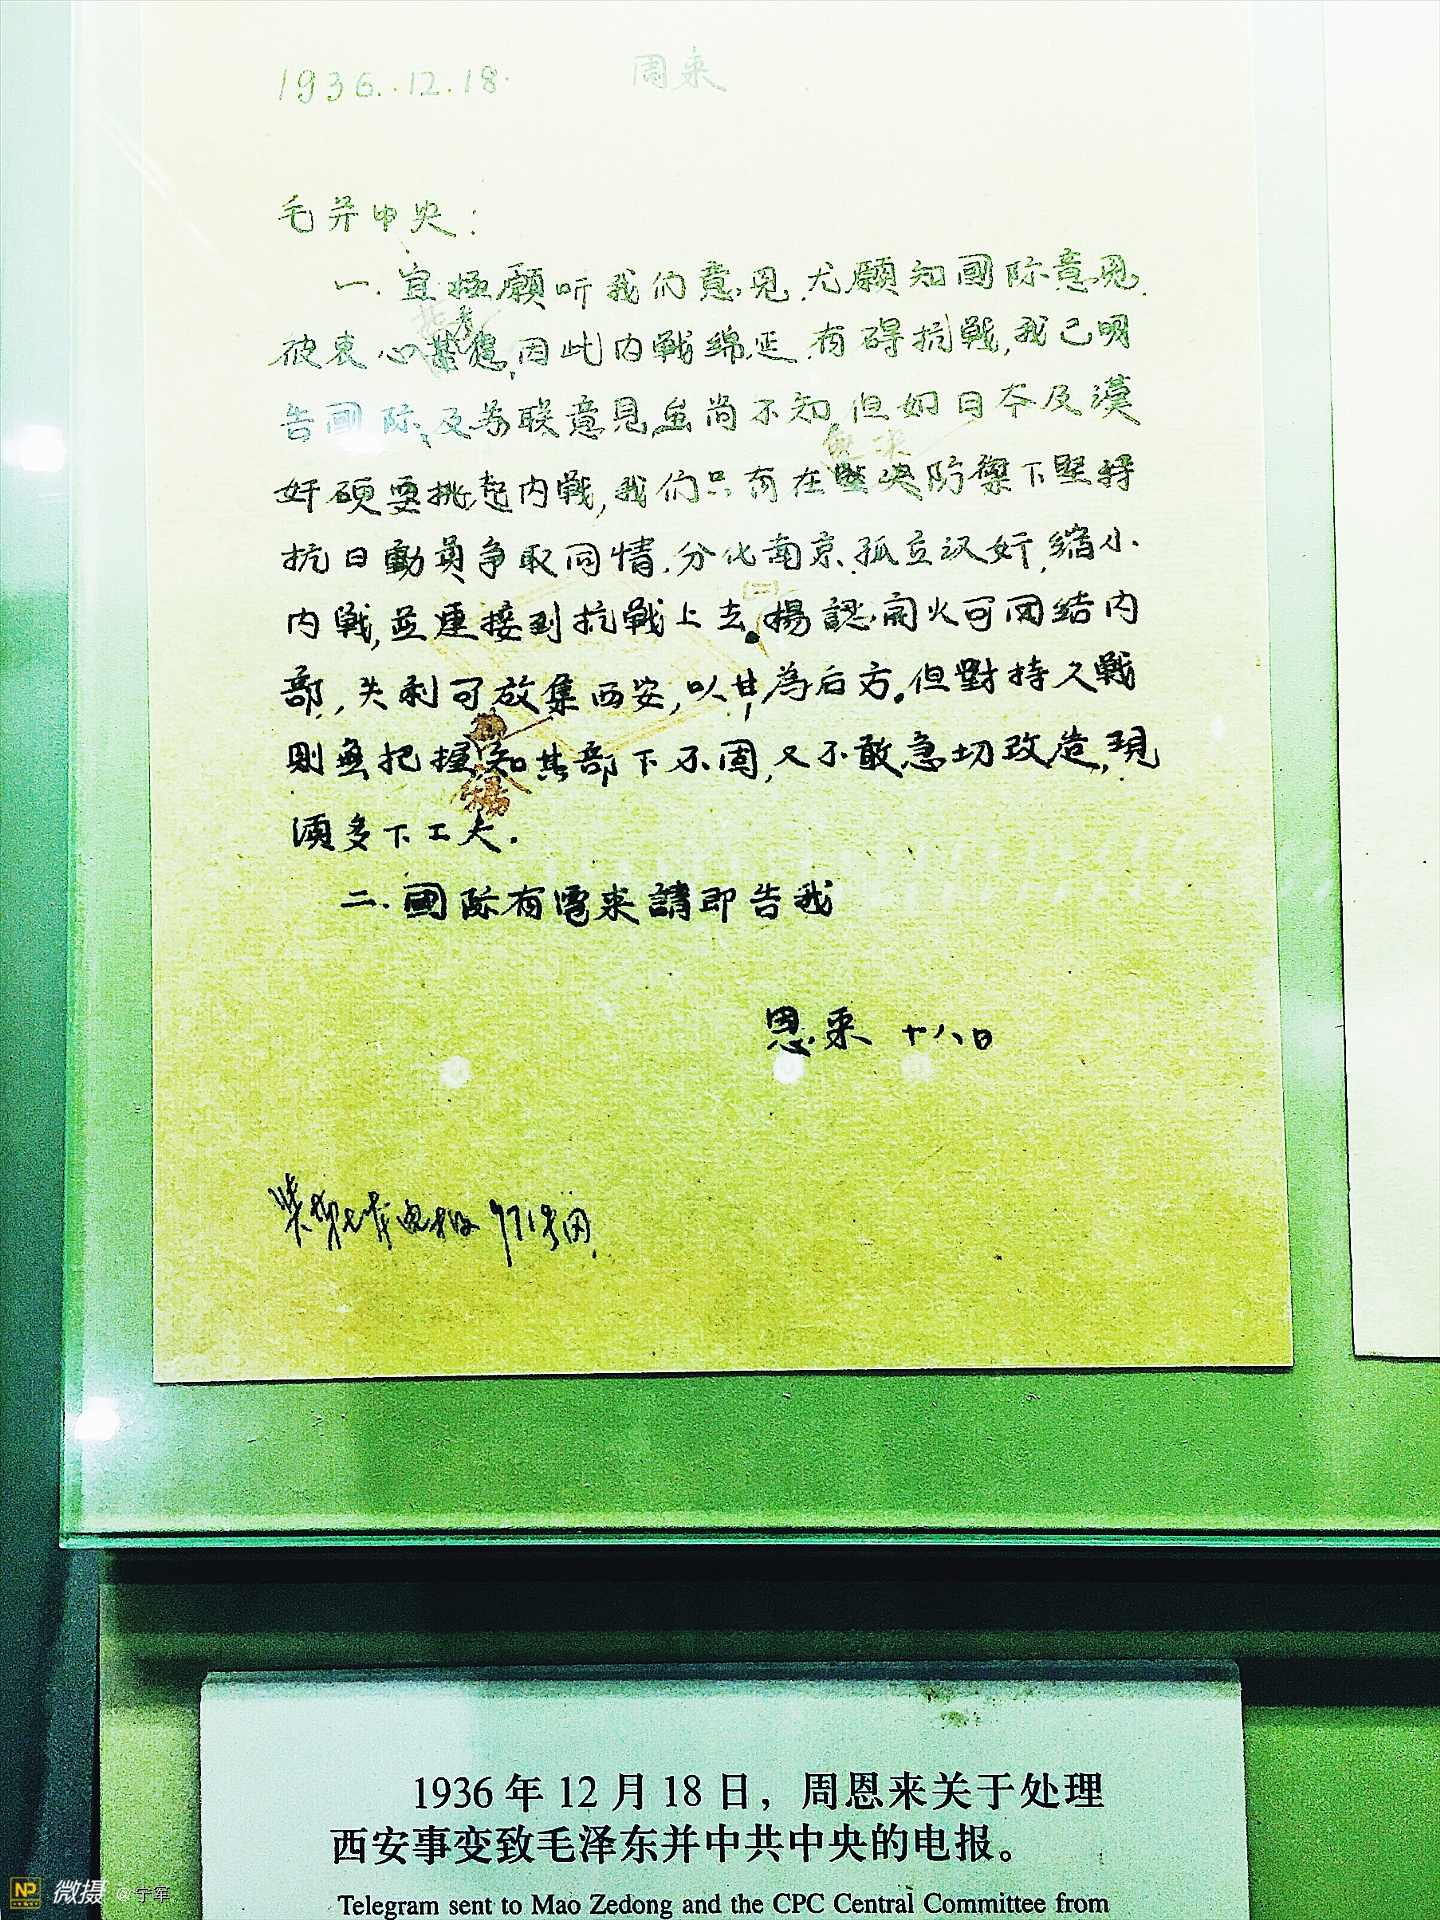 1936.12.18. 周来
毛并中央:
一. 宜极願听我们意见,尤願知國际意见.
彼衷心焦慮,因此内戰綿延,有碍抗戰,我已明
告國际,及苏联意见虽尚不知,但如日本及漢
奸硬要挑起内戰,我们只有在堅决防禦下堅持
抗日動員争取同情,分化南京,孤立汉奸,缩小
内戰,並連接到抗戰上去.楊認開火可团结内
部,失利可放集西安,以甘為后方.但對持久戰
則無把握,知其部下不固,又不敢急切改造,現
須多下工夫.
二. 國际有電来請即告我
恩来 十八日
1936 年 12 月 18 日，周恩来关于处理
西安事变致毛泽东并中共中央的电报。
Telegram sent to Mao Zedong and the CPC Central Committee from
NP 微摄 @ 宁军